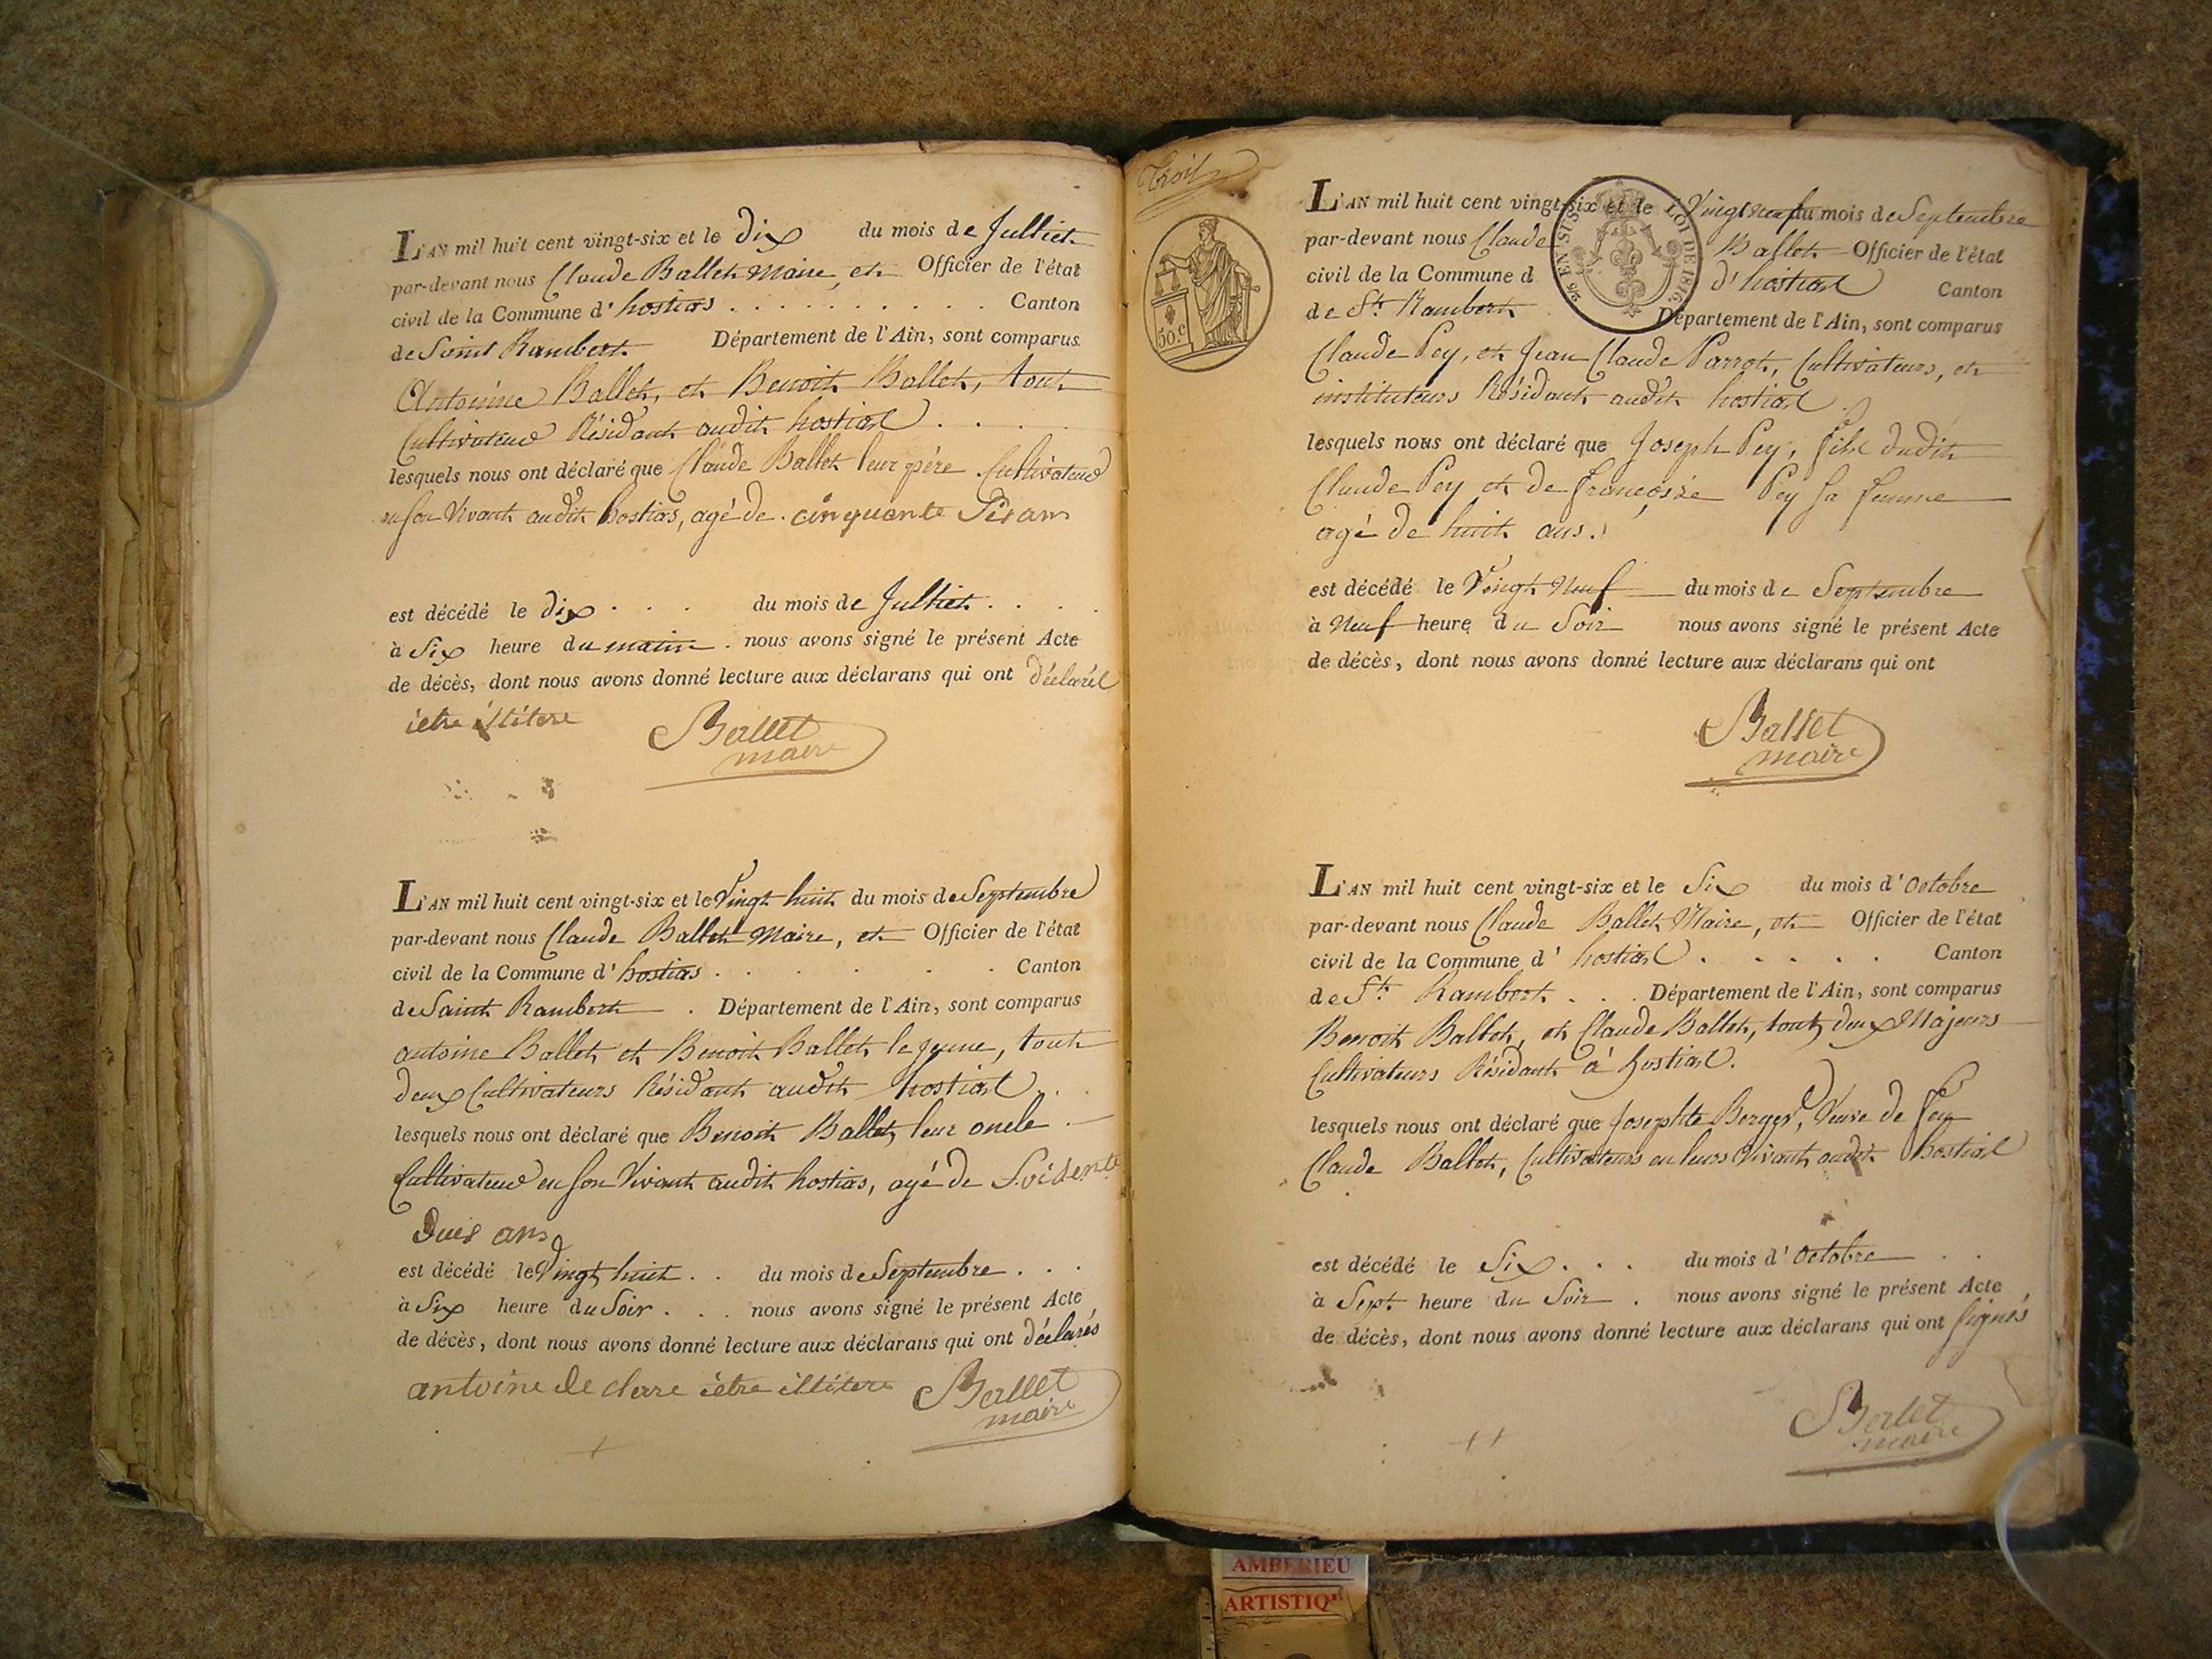 L'AN mil huit cent vingt-six et le dix du mois de Julliet
par-devant nous Claude Ballet Maire, et Officier de l'état
civil de la Commune d'hostias . . . . . . . . Canton
de Saint Rambert Département de l'Ain, sont comparus
Antoinne Ballet, et Benoit Ballet, tout
Cultivateur Résidant audit hostias . . . .
lesquels nous ont déclaré que Claude Ballet leur père Cultivateur
en son Vivant audit hostias, agé de cinquante ans
est décédé le dix . . . du mois de Julliet . . . .
à Six heure du matin . nous avons signé le présent Acte
de décès, dont nous avons donné lecture aux déclarans qui ont déclarés
ietre illitere Ballet
maire
L'AN mil huit cent vingt-six et le Vingt huit du mois de Septembre
par-devant nous Claude Ballet Maire, et Officier de l'état
civil de la Commune d'hostias . . . . . . Canton
de Saint Rambert . Département de l'Ain, sont comparus
antoine Ballet et Benoit Ballet le jeune, tout
deux Cultivateurs Résidant audit hostias . .
lesquels nous ont déclaré que Benoit Ballet leur oncle
Cultivateur en son Vivant audit hostias, agé de Soisente
Dues ans
est décédé le Vingt huit . . du mois de Septembre . . .
à Six heure du Soir . . . nous avons signé le présent Acte
de décès, dont nous avons donné lecture aux déclarans qui ont déclarés
antoine declare ietre illitere Ballet
maire
L'AN mil huit cent vingt-six et le Vingt neuf du mois de Septembre
par-devant nous Claude Ballet Officier de l'état
civil de la Commune d d'hostias Canton
de St Rambert Département de l'Ain, sont comparus
EN SUS LOI DE 1816.
50.c
Claude Pey, et Jean Claude Parrot, Cultivateurs, et
instituteurs Résidant audit hostias
lesquels nous ont déclaré que Joseph Pey, fils dudit
Claude Pey et de francoise Pey sa femme
agé de huit ans.
est décédé le Vingt Neuf du mois de Septembre
à Neuf heure du Soir nous avons signé le présent Acte
de décès, dont nous avons donné lecture aux déclarans qui ont
Ballet
maire
L'AN mil huit cent vingt-six et le Six du mois d'Octobre
par-devant nous Claude Ballet Maire, et Officier de l'état
civil de la Commune d'hostias . . . . . Canton
de St Rambert . . . Département de l'Ain, sont comparus
Benoit Ballet, et Claude Ballet, tout deux Majeurs
Cultivateurs Résidant à hostias.
lesquels nous ont déclaré que Josephte Berger, Veuve de feu
Claude Ballet, Cultivateurs en leurs Vivant audit hostias
est décédé le Six . . . du mois d'Octobre . .
à Sept heure du Soir . nous avons signé le présent Acte
de décès, dont nous avons donné lecture aux déclarans qui ont signés
Ballet
maire
AMBERIEU
ARTISTIQ